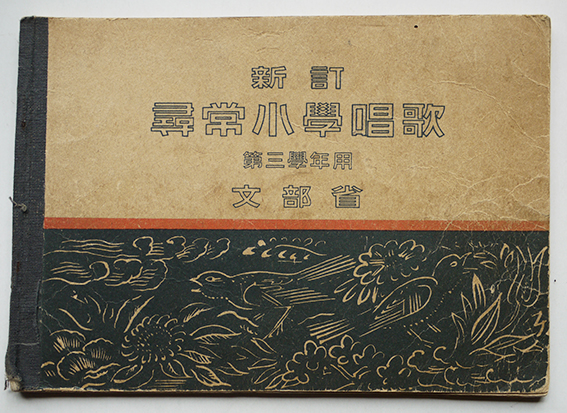 新訂
尋常小學唱歌
第三學年用
文部省